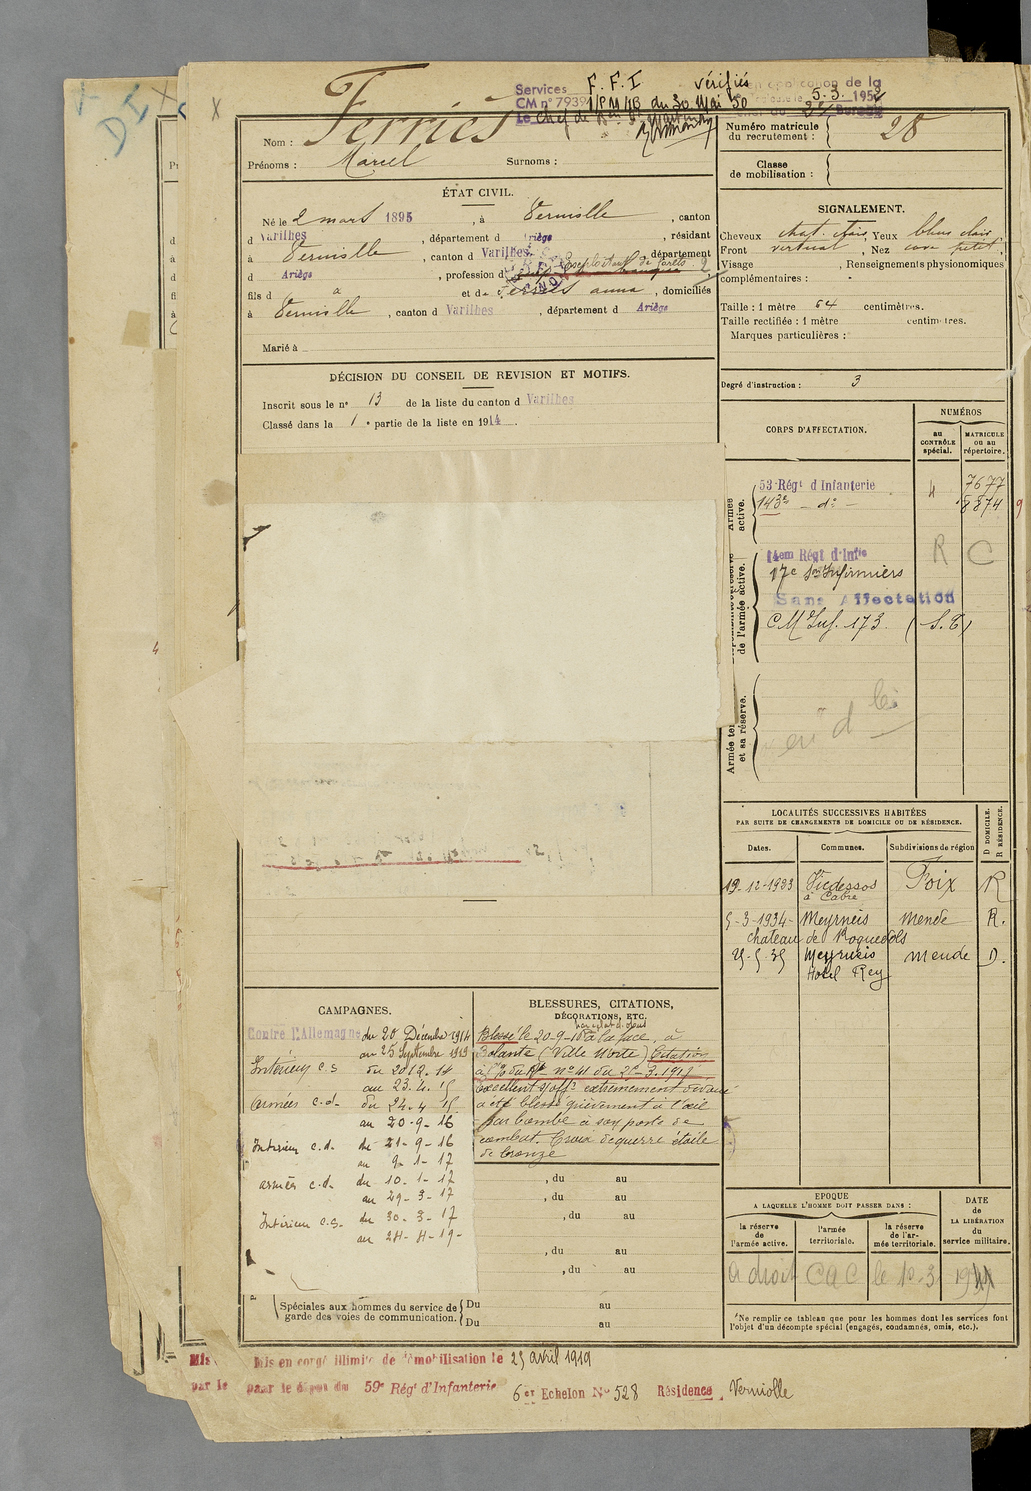 Services F. F. I vérifiés
CM n° 7939 1/PM 4B du 30 Mai 50
Le Chef de
5.3. 1952
Bureau
Nom : Ferriès
Prénoms : Marcel Surnoms :
Numéro matricule du recrutement : 28
Classe de mobilisation :
ÉTAT CIVIL.
Né le 2 mars 1895, à Verniolle, canton
d Varilhes, département d Ariège, résidant
à Verniolle, canton d Varilhes, département
d Ariège, profession d
fils d et d anna, domiciliés
à Verniolle, canton d Varilhes, département d Ariège
Marié à
SIGNALEMENT.
Cheveux chat. clair, Yeux bleus clair
Front vertical, Nez cave petit,
Visage , Renseignements physionomiques
complémentaires :
Taille : 1 mètre 64 centimètres.
Taille rectifiée : 1 mètre centimètres.
Marques particulières :
Degré d'instruction : 3
DÉCISION DU CONSEIL DE REVISION ET MOTIFS.
Inscrit sous le n° 13 de la liste du canton d Varilhes
Classé dans la 1 e partie de la liste en 1914.
CORPS D'AFFECTATION.
NUMÉROS
au CONTRÔLE spécial.
MATRICULE ou au répertoire.
Armée active.
53 Régt d Infanterie 4 7677
143e - do - 8874
de l'armée active.
14em Régt d'Infie R C
17e Son Infirmiers
Sans Affectation
C M Inf. 173 (S.E)
et sa réserve.
LOCALITÉS SUCCESSIVES HABITÉES
PAR SUITE DE CHANGEMENTS DE DOMICILE OU DE RÉSIDENCE.
D DOMICILE.
R RÉSIDENCE.
Dates. Communes. Subdivisions de région
19-12-1933 Vicdessos à Cabre Foix R
5-3-1934- Meyrueis Mende R.
chateau de Roquedols
25-5-35 Meyrueis mende D.
Hotel Rey
CAMPAGNES.
Contre l'Allemagne du 20 Décembre 1914
au 25 Septembre 1919
Intérieur c.s du 20.12.14
au 23.4.15
armées c.d. du 24.4 15
au 20-9-16
Intérieur c.d. du 21-9-16
au 9-1-17
armées c.d. du 10-1-17
au 29-3-17
Intérieur c.s. du 30-3-17
au 24-4-19-
BLESSURES, CITATIONS,
DÉCORATIONS, ETC.
par éclat d'obus
Blessé le 20-9-16 à la face, à
Bolante (Ville Morte) Citation
à l'O du Rt n° 41 du 25-3-1917
Excellent s/offr extrêmement dévoué
a été blessé grièvement à l'œil
par bombe à son poste de
combat. Croix de guerre étoile
de bronze
, du au
, du au
, du au
, du au
, du au
Spéciales aux hommes du service de garde des voies de communication. Du au
Du au
EPOQUE
A LAQUELLE L'HOMME DOIT PASSER DANS :
la réserve de l'armée active.
l'armée territoriale.
la réserve de l'armée territoriale.
DATE de LA LIBÉRATION du service militaire.
a droit CaC le 10.3
Ne remplir ce tableau que pour les hommes dont les services font
l'objet d'un décompte spécial (engagés, condamnés, omis, etc.).
Mis en congé illimité de démobilisation le 25 avril 1919
par le dépôt du 59e Régt d'Infanterie 6 Echelon N° 528 Résidence Verniolle